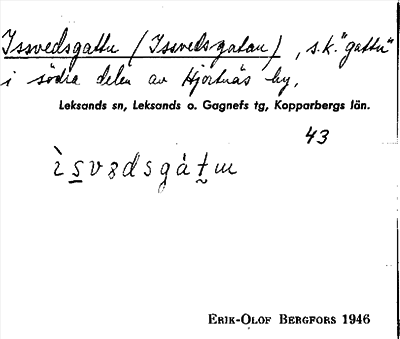 Issvedsgattu (Issvedsgatan), s.k. "gattu"
i södra delen av Hjortnäs by.
Leksands sn, Leksands o. Gagnefs tg, Kopparbergs län.
43
ìsvedsgàtu
ERIK-OLOF BERGFORS 1946